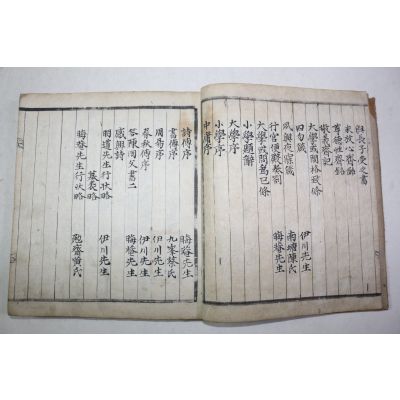 與長子受之書
求放心齋銘
尊德性齋銘
敬義齋記
大學或問格致條
四勿箴 伊川先生
夙興夜寐箴 南塘陳氏
行宮便殿奏劄 晦菴先生
大學或問篇已條
小學題辭
大學序
小學序
中庸序
詩傳序 晦菴先生
書傳序 九峯蔡氏
周易序 伊川先生
春秋傳序 伊川先生
答陳同父書二 晦菴先生
感興詩
明道先生行狀略 伊川先生
墓表略
晦菴先生行狀略 勉齋黃氏